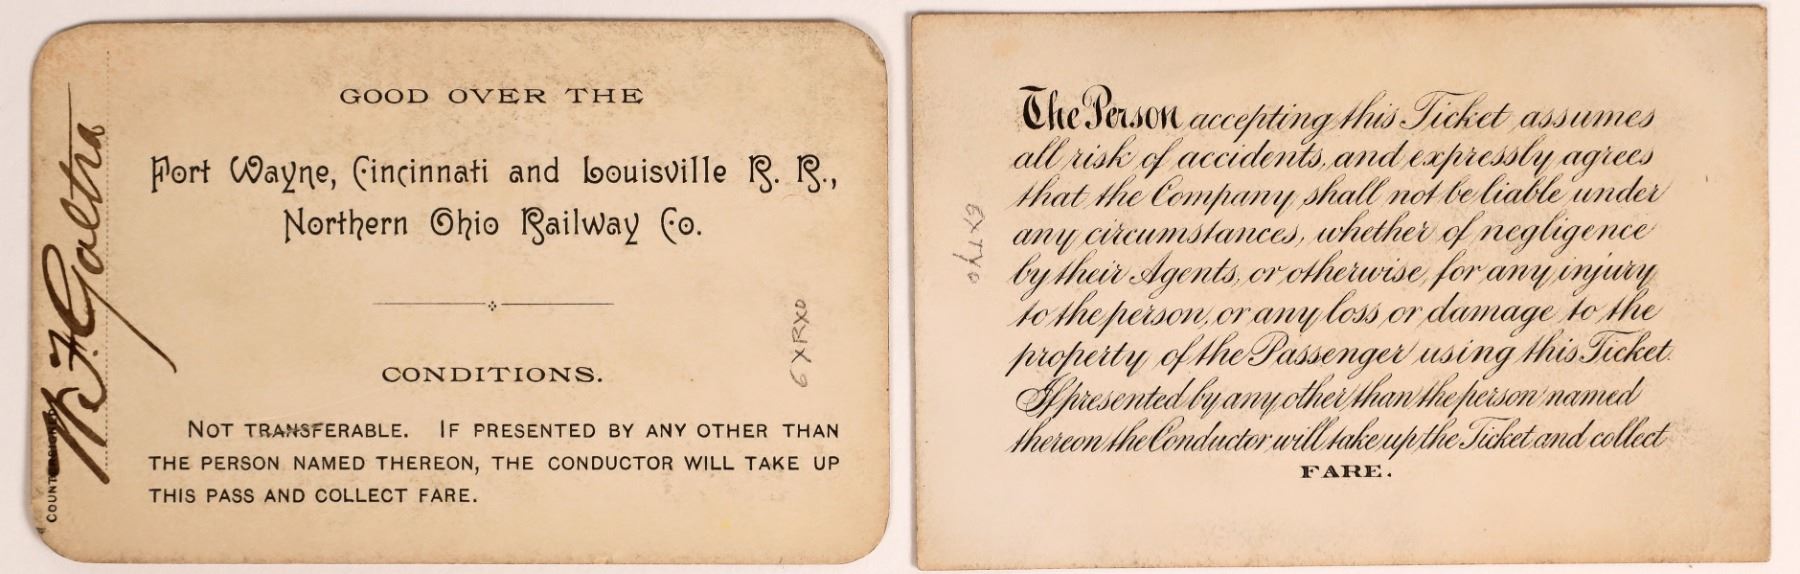 GOOD OVER THE
Fort Wayne, Cincinnati and Louisville R. R.,
Northern Ohio Railway Co.
CONDITIONS.
NOT TRANSFERABLE. IF PRESENTED BY ANY OTHER THAN
THE PERSON NAMED THEREON, THE CONDUCTOR WILL TAKE UP
THIS PASS AND COLLECT FARE.
COUNTERSIGNED
6XRXO
The Person accepting this Ticket assumes
all risk of accidents, and expressly agrees
that the Company shall not be liable under
any circumstances, whether of negligence
by their Agents, or otherwise, for any injury
to the person, or any loss or damage to the
property of the Passenger using this Ticket.
If presented by any other than the person named
thereon the Conductor will take up the Ticket and collect
FARE.